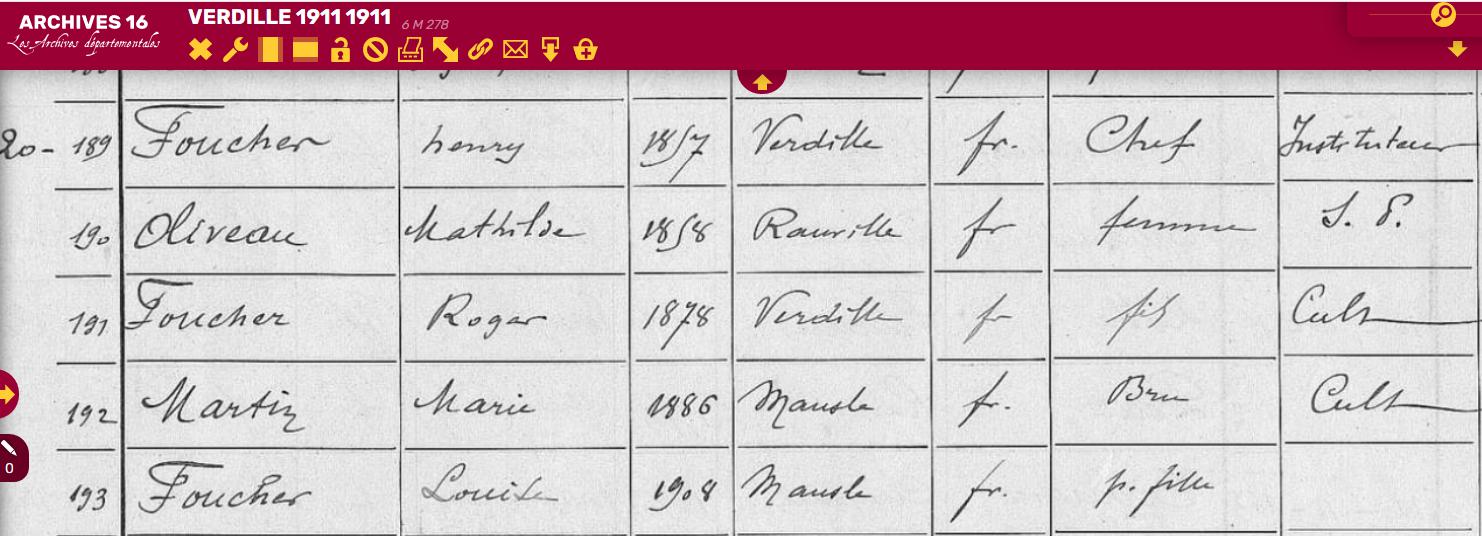 ARCHIVES 16
Les Archives départementales
VERDILLE 1911 1911 6 M 278
20- 189 Foucher henry 1857 Verdille fr. Chef Instituteur
190 Oliveau Mathilde 1858 Ranville fr femme S. P.
191 Foucher Roger 1878 Verdille fr fils Cult
192 Martin Marie 1886 Mansle fr. Bru Cult
0
193 Foucher Louise 1908 Mansle fr. p. fille